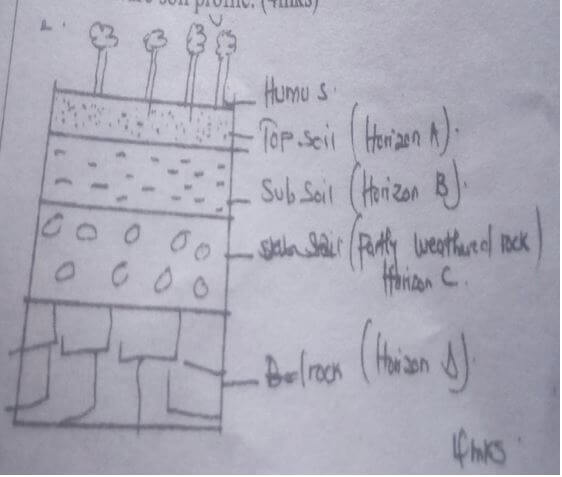 soil profile. (4mks)
2.
Humus.
Top soil (Horizon A).
Sub Soil (Horizon B).
(Partly weathered rock)
Horizon C.
rock (Horizon D).
4mks